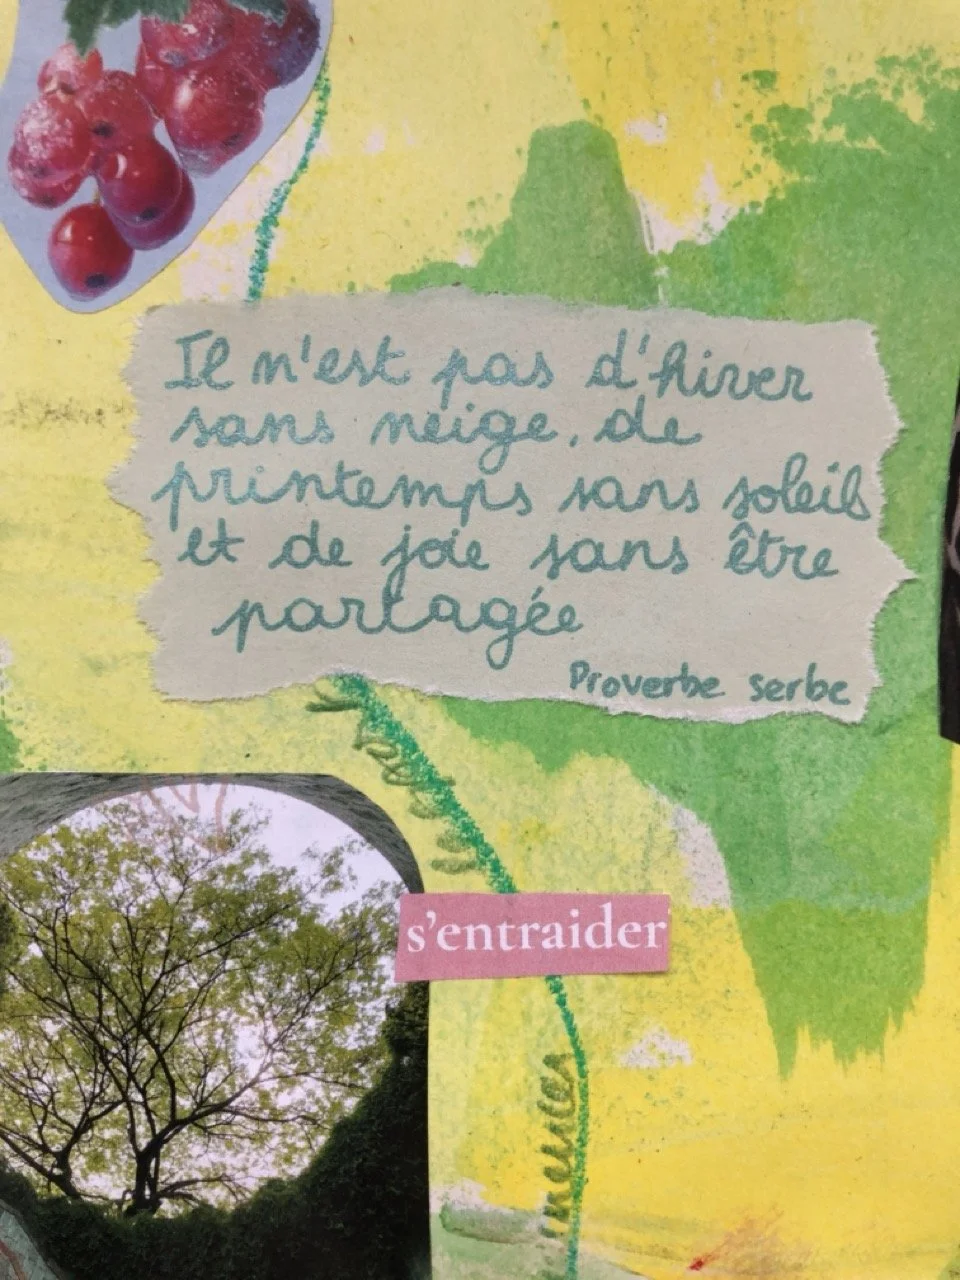 Il n'est pas d'hiver
sans neige, de
printemps sans soleil
et de joie sans être
partagée
Proverbe serbe
s'entraider